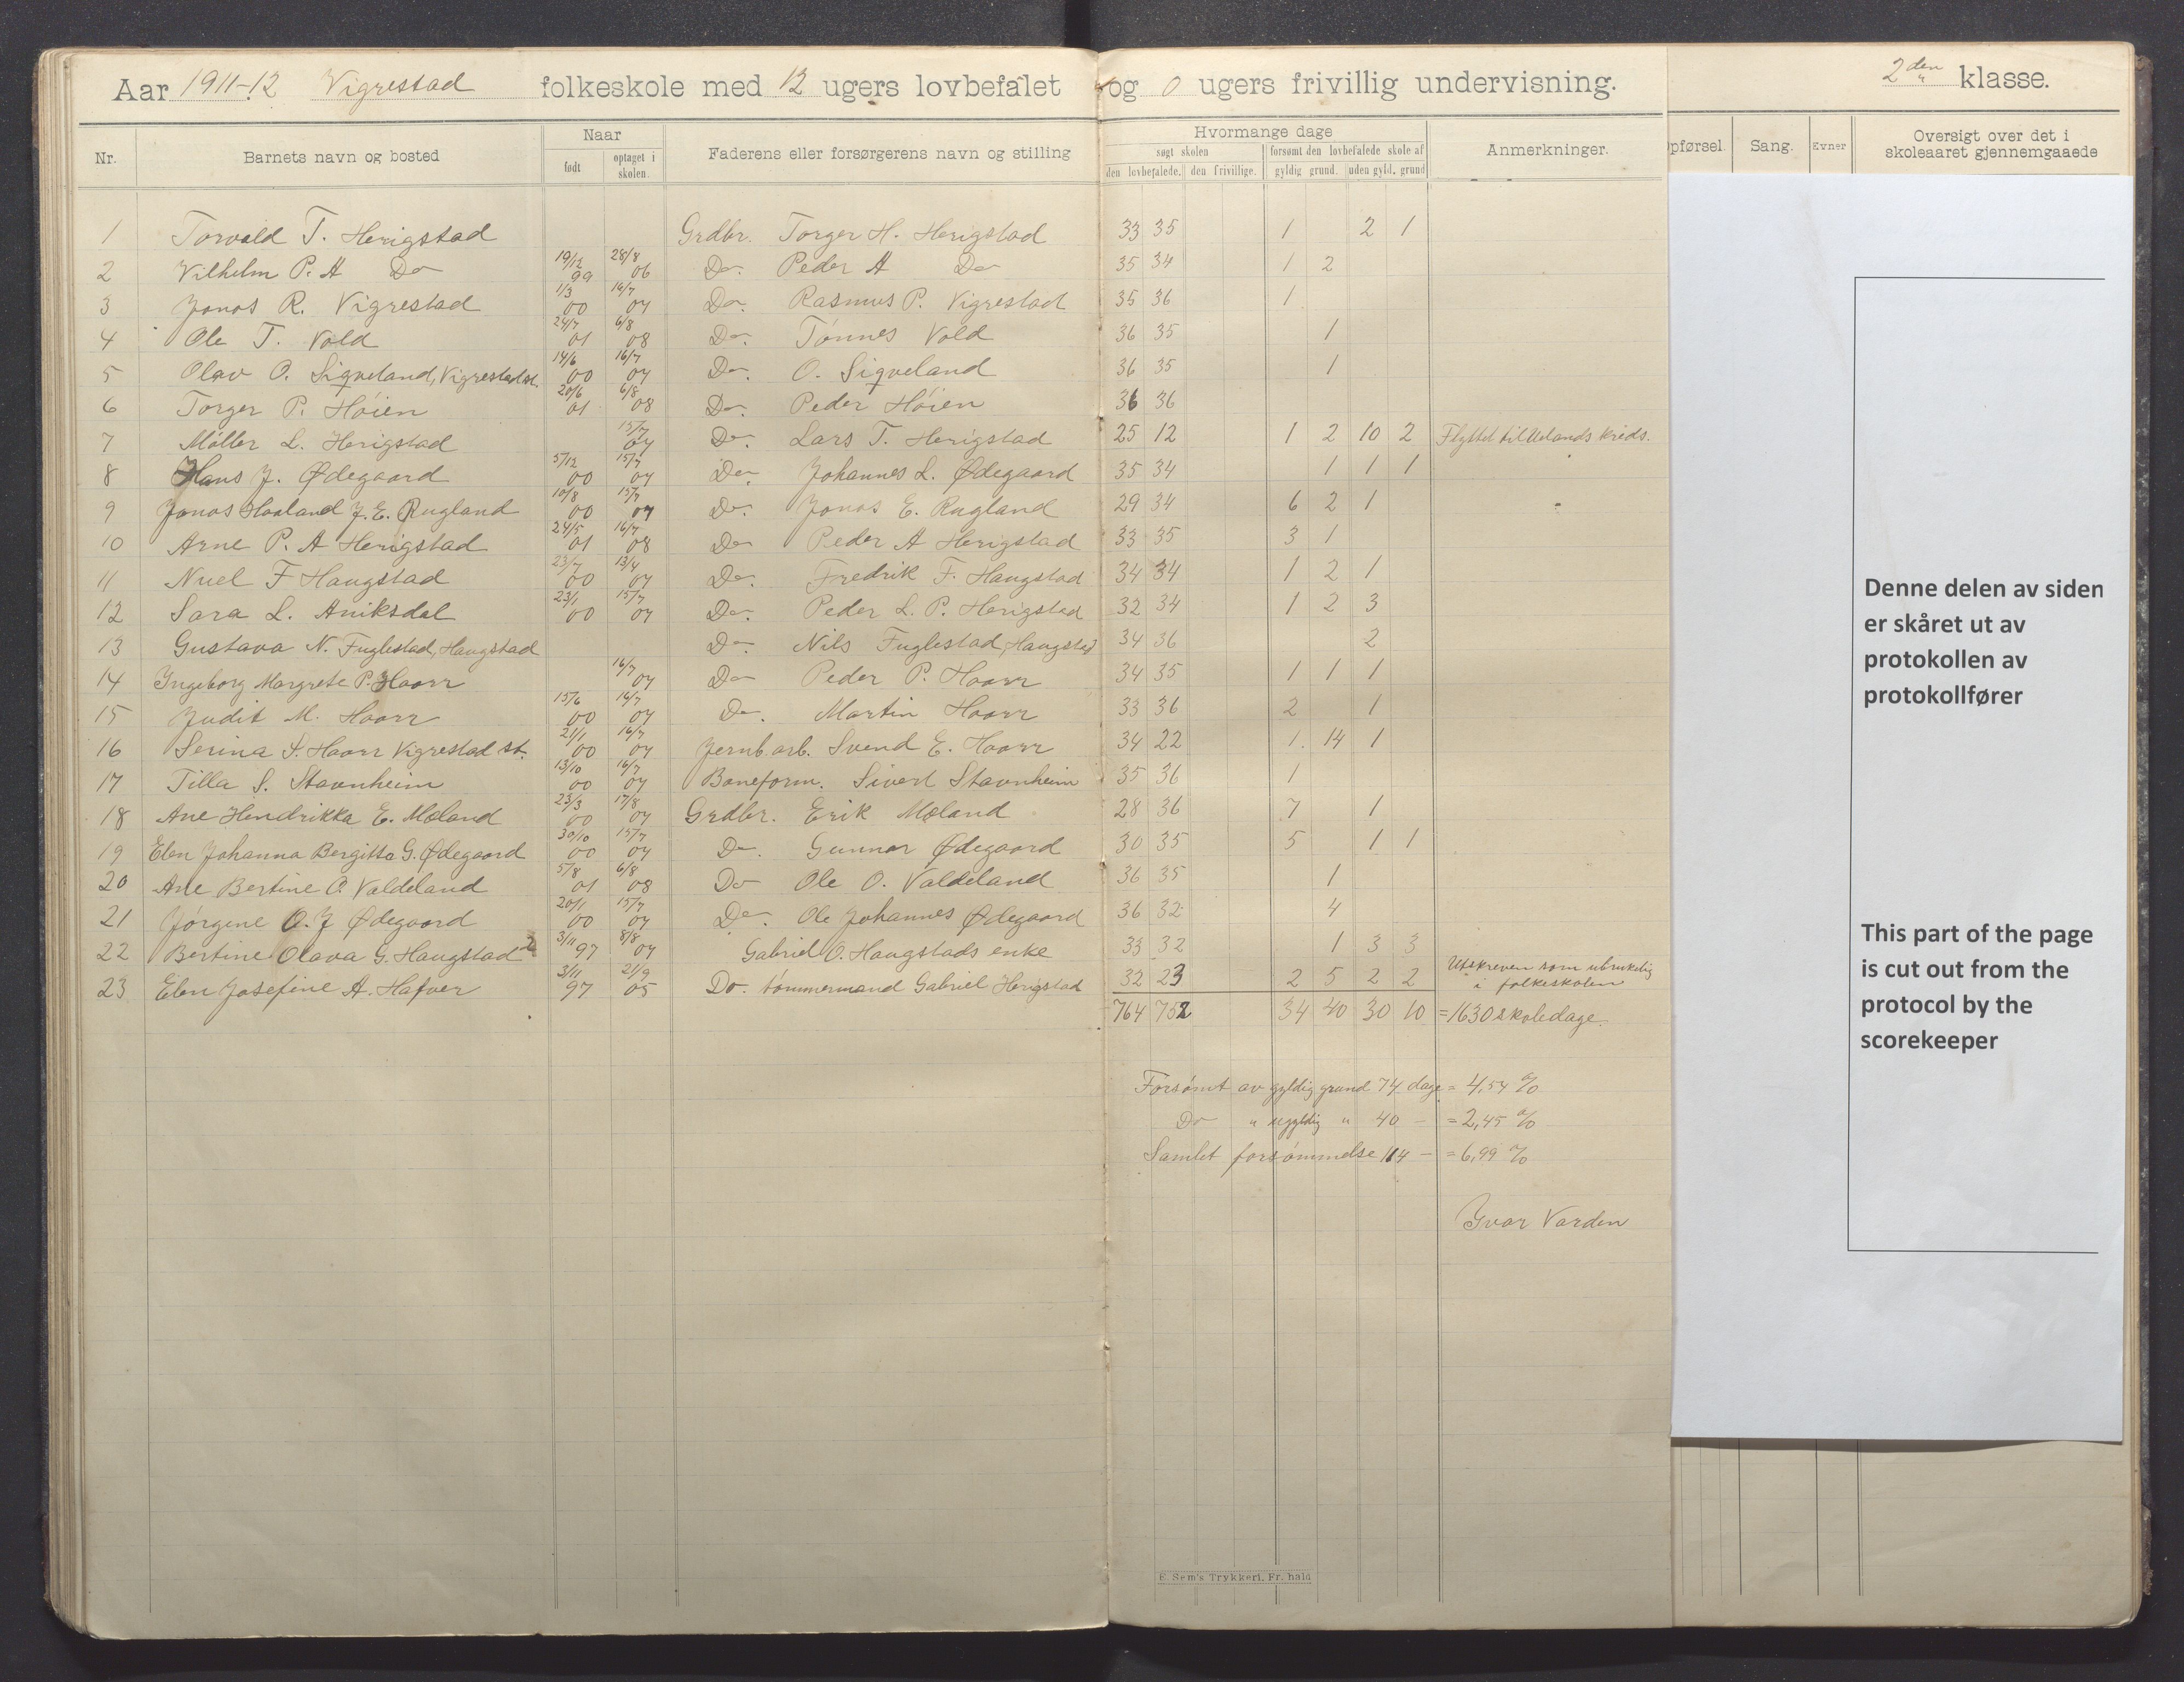 Aar 1911-12 Vigrestad folkeskole med 12 ugers lovbefalet og 0 ugers frivillig undervisning. 2den klasse.
Nr. Barnets navn og bosted Naar født optaget i skolen. Faderens eller forsørgerens navn og stilling Hvormange dage søgt skolen den lovbefalede. den frivillige. forsømt den lovbefalede skole af gyldig grund. uden gyld. grund Anmerkninger. pførsel. Sang. Evner Oversigt over det i skoleaaret gjennemgaaede
1 Torvald T. Herigstad Grdbr. Torger H. Herigstad 33 35 1 2 1
2 Vilhelm P. A Do 19/12 99 28/8 06 Do. Peder A Do 35 34 1 2
3 Jonas R. Vigrestad 1/3 00 14/7 07 Do. Rasmus P. Vigrestad 35 36 1
4 Ole T. Vold 24/7 01 6/8 08 Do. Tønnes Vold 36 35 1
5 Olav O. Siqveland, Vigrestad st. 14/6 00 16/7 07 Do. O. Siqveland 36 35 1
6 Torger P. Høien 20/6 01 6/8 08 Do. Peder Høien 36 36
7 Møller L. Herigstad 15/7 07 Do. Lars T. Herigstad 25 12 1 2 10 2 Flyttet til Uelands kreds.
8 Hans J. Ødegaard 5/12 00 15/7 07 Do. Johannes L. Ødegaard 35 34 1 1 1
9 Jonas Haaland J. E. Rugland 10/8 00 15/7 07 Do. Jonas E. Rugland 29 34 6 2 1
10 Arne P. A Herigstad 24/5 01 16/7 08 Do Peder A Herigstad 33 35 3 1
11 Nuel F Haugstad 23/7 00 13/4 07 Do. Fredrik F. Haugstad 34 34 1 2 1
12 Sara L. Aniksdal 23/1 00 15/7 07 Do. Peder L. P. Herigstad 32 34 1 2 3
13 Gustava N. Fuglestad, Haugstad Do Nils Fuglestad, Haugstad 34 36 2
14 Ingeborg Margrete P. Haarr 16/7 07 Do Peder P. Haarr 34 35 1 1 1
15 Judit M. Haarr 15/6 00 14/7 07 Do. Martin Haarr 33 36 2 1
16 Serina S. Haarr Vigrestad st. 21/1 00 16/7 07 Jernb. arb. Svend E. Haarr 34 22 1. 14 1
17 Tilla S. Stavnheim 13/10 00 16/7 07 Baneform. Sivert Stavnheim 35 36 1
18 Ane Hendrikka E. Mæland 23/3 00 17/8 07 Grdbr. Erik Mæland 28 36 7 1
19 Elen Johanna Bergitta G. Ødegaard 30/10 00 15/7 07 Do. Gunnar Ødegaard 30 35 5 1 1
20 Ane Bertine O. Valdeland 5/8 01 6/8 08 Do Ole O. Valdeland 36 35 1
21 Jørgine O. J Ødegaard 20/1 00 15/7 07 Do. Ole Johannes Ødegaard 36 32 4
22 Bertine Olava G. Haugstad 3/11 97 8/8 07 Gabriel O. Haugstads enke 33 32 1 3 3
23 Elen Josefine A. Hafver 3/11 97 21/9 05 Do. tømmermand Gabriel Herigstad 32 23 2 5 2 2 Utskreven som ubrukelig i folkeskolen
764 752 34 40 30 10 = 1630 skoledage.
Forsømt av gyldig grund 74 dage = 4,54 %
Do " ugyldig " 40 — = 2,45 %
Samlet forsømmelse 114 — = 6,99 %
Ivar Varden
E. Sem's Trykkeri, Fr. hald
Denne delen av siden
er skåret ut av
protokollen av
protokollfører
This part of the page
is cut out from the
protocol by the
scorekeeper